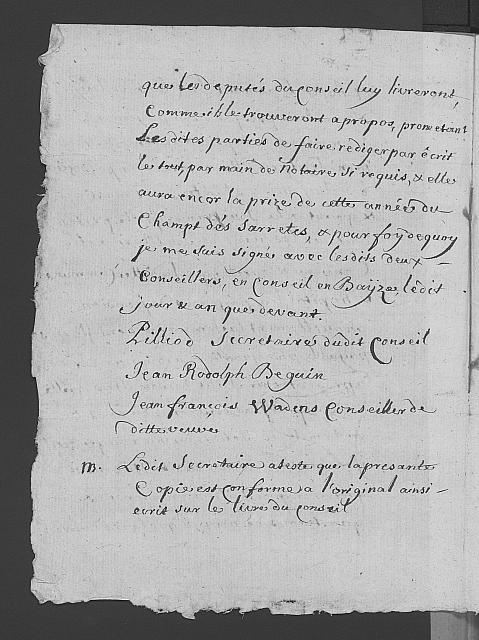 que les deputés du Conseil luy livreront
Comme ils le trouveront a propos, prometant
Lesdites parties de faire rediger par écrit
le tout par main de Notaire si requis, & elle
aura encor la prize de cette année du
Champt des Sarretes, & pour foy de quoy
je me suis signé avec lesdits deux
Conseillers, en Conseil en Bayze, ledit
jour & an que devant
Pilliod Secretaire dudit Conseil
Jean Rodolph Beguin
Jean françois Wadens Conseiller de
ditte veuve
Ledit Secretaire ateste que la presante
Copie est conforme a l'original ainsi
ecrit sur le livre du Conseil